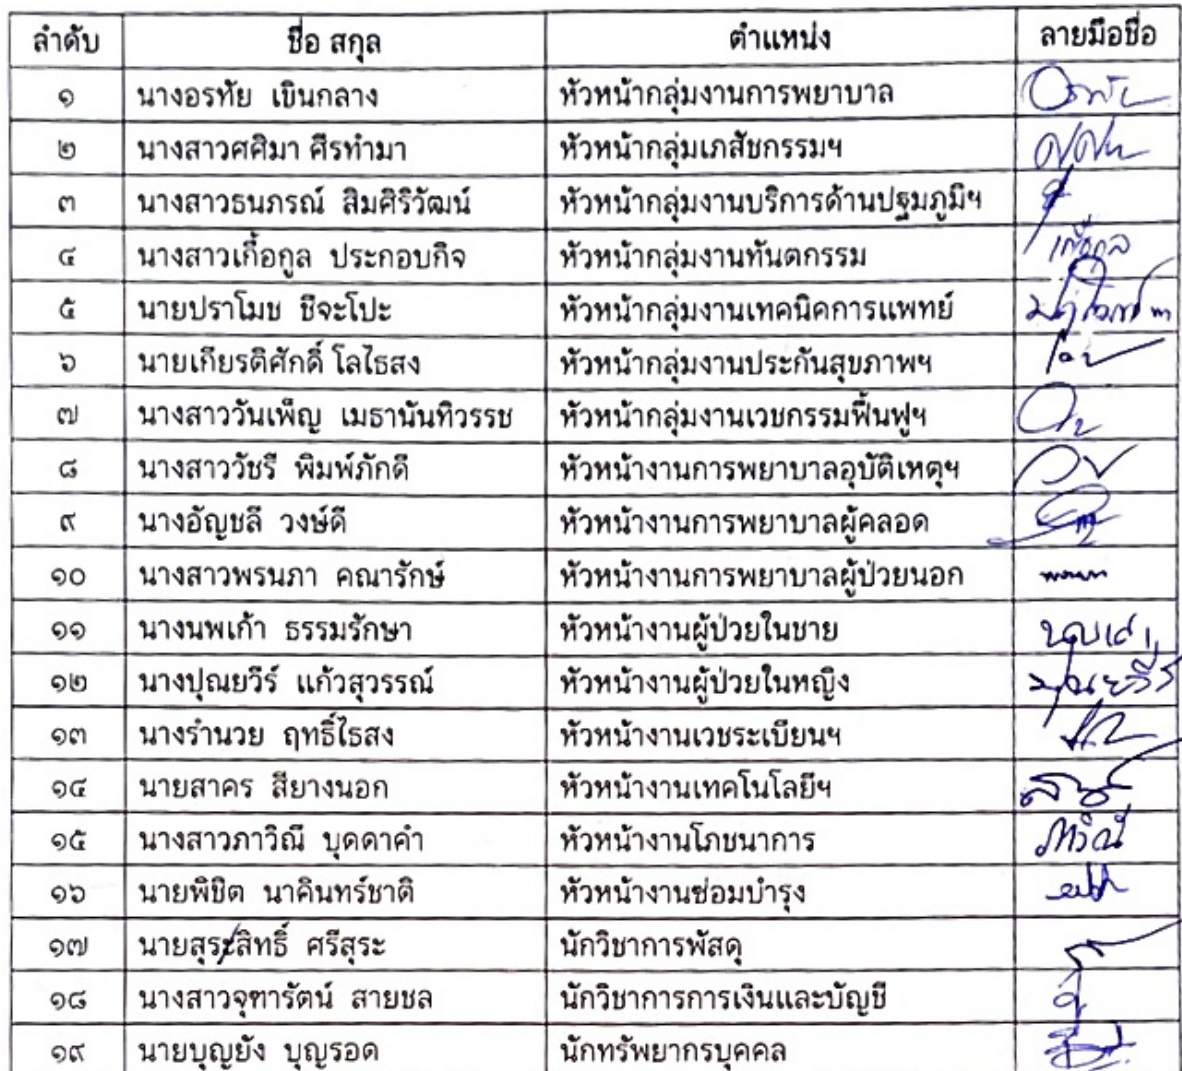 ลำดับ ชื่อ สกุล ตำแหน่ง ลายมือชื่อ
๑ นางอรทัย เขินกลาง หัวหน้ากลุ่มงานการพยาบาล
๒ นางสาวศศิมา ศีรทำมา หัวหน้ากลุ่มเภสัชกรรมฯ
๓ นางสาวธนภรณ์ สิมศิริวัฒน์ หัวหน้ากลุ่มงานบริการด้านปฐมภูมิฯ
๔ นางสาวเกื้อกูล ประกอบกิจ หัวหน้ากลุ่มงานทันตกรรม เกื้อกูล
๕ นายปราโมช ชีจะโปะ หัวหน้ากลุ่มงานเทคนิคการแพทย์
๖ นายเกียรติศักดิ์ โลไธสง หัวหน้ากลุ่มงานประกันสุขภาพฯ
๗ นางสาววันเพ็ญ เมธานันทิวรรช หัวหน้ากลุ่มงานเวชกรรมฟื้นฟูฯ
๘ นางสาววัชรี พิมพ์ภักดี หัวหน้างานการพยาบาลอุบัติเหตุฯ
๙ นางอัญชลี วงษ์ดี หัวหน้างานการพยาบาลผู้คลอด
๑๐ นางสาวพรนภา คณารักษ์ หัวหน้างานการพยาบาลผู้ป่วยนอก
๑๑ นางนพเก้า ธรรมรักษา หัวหน้างานผู้ป่วยในชาย นพเก้า
๑๒ นางปุณยวีร์ แก้วสุวรรณ์ หัวหน้างานผู้ป่วยในหญิง ปุณยวีร์
๑๓ นางรำนวย ฤทธิ์ไธสง หัวหน้างานเวชระเบียนฯ
๑๔ นายสาคร สียางนอก หัวหน้างานเทคโนโลยีฯ
๑๕ นางสาวภาวิณี บุดดาคำ หัวหน้างานโภชนาการ ภาวิณี
๑๖ นายพิชิต นาคินทร์ชาติ หัวหน้างานซ่อมบำรุง
๑๗ นายสุระสิทธิ์ ศรีสุระ นักวิชาการพัสดุ
๑๘ นางสาวจุฑารัตน์ สายชล นักวิชาการการเงินและบัญชี
๑๙ นายบุญยัง บุญรอด นักทรัพยากรบุคคล